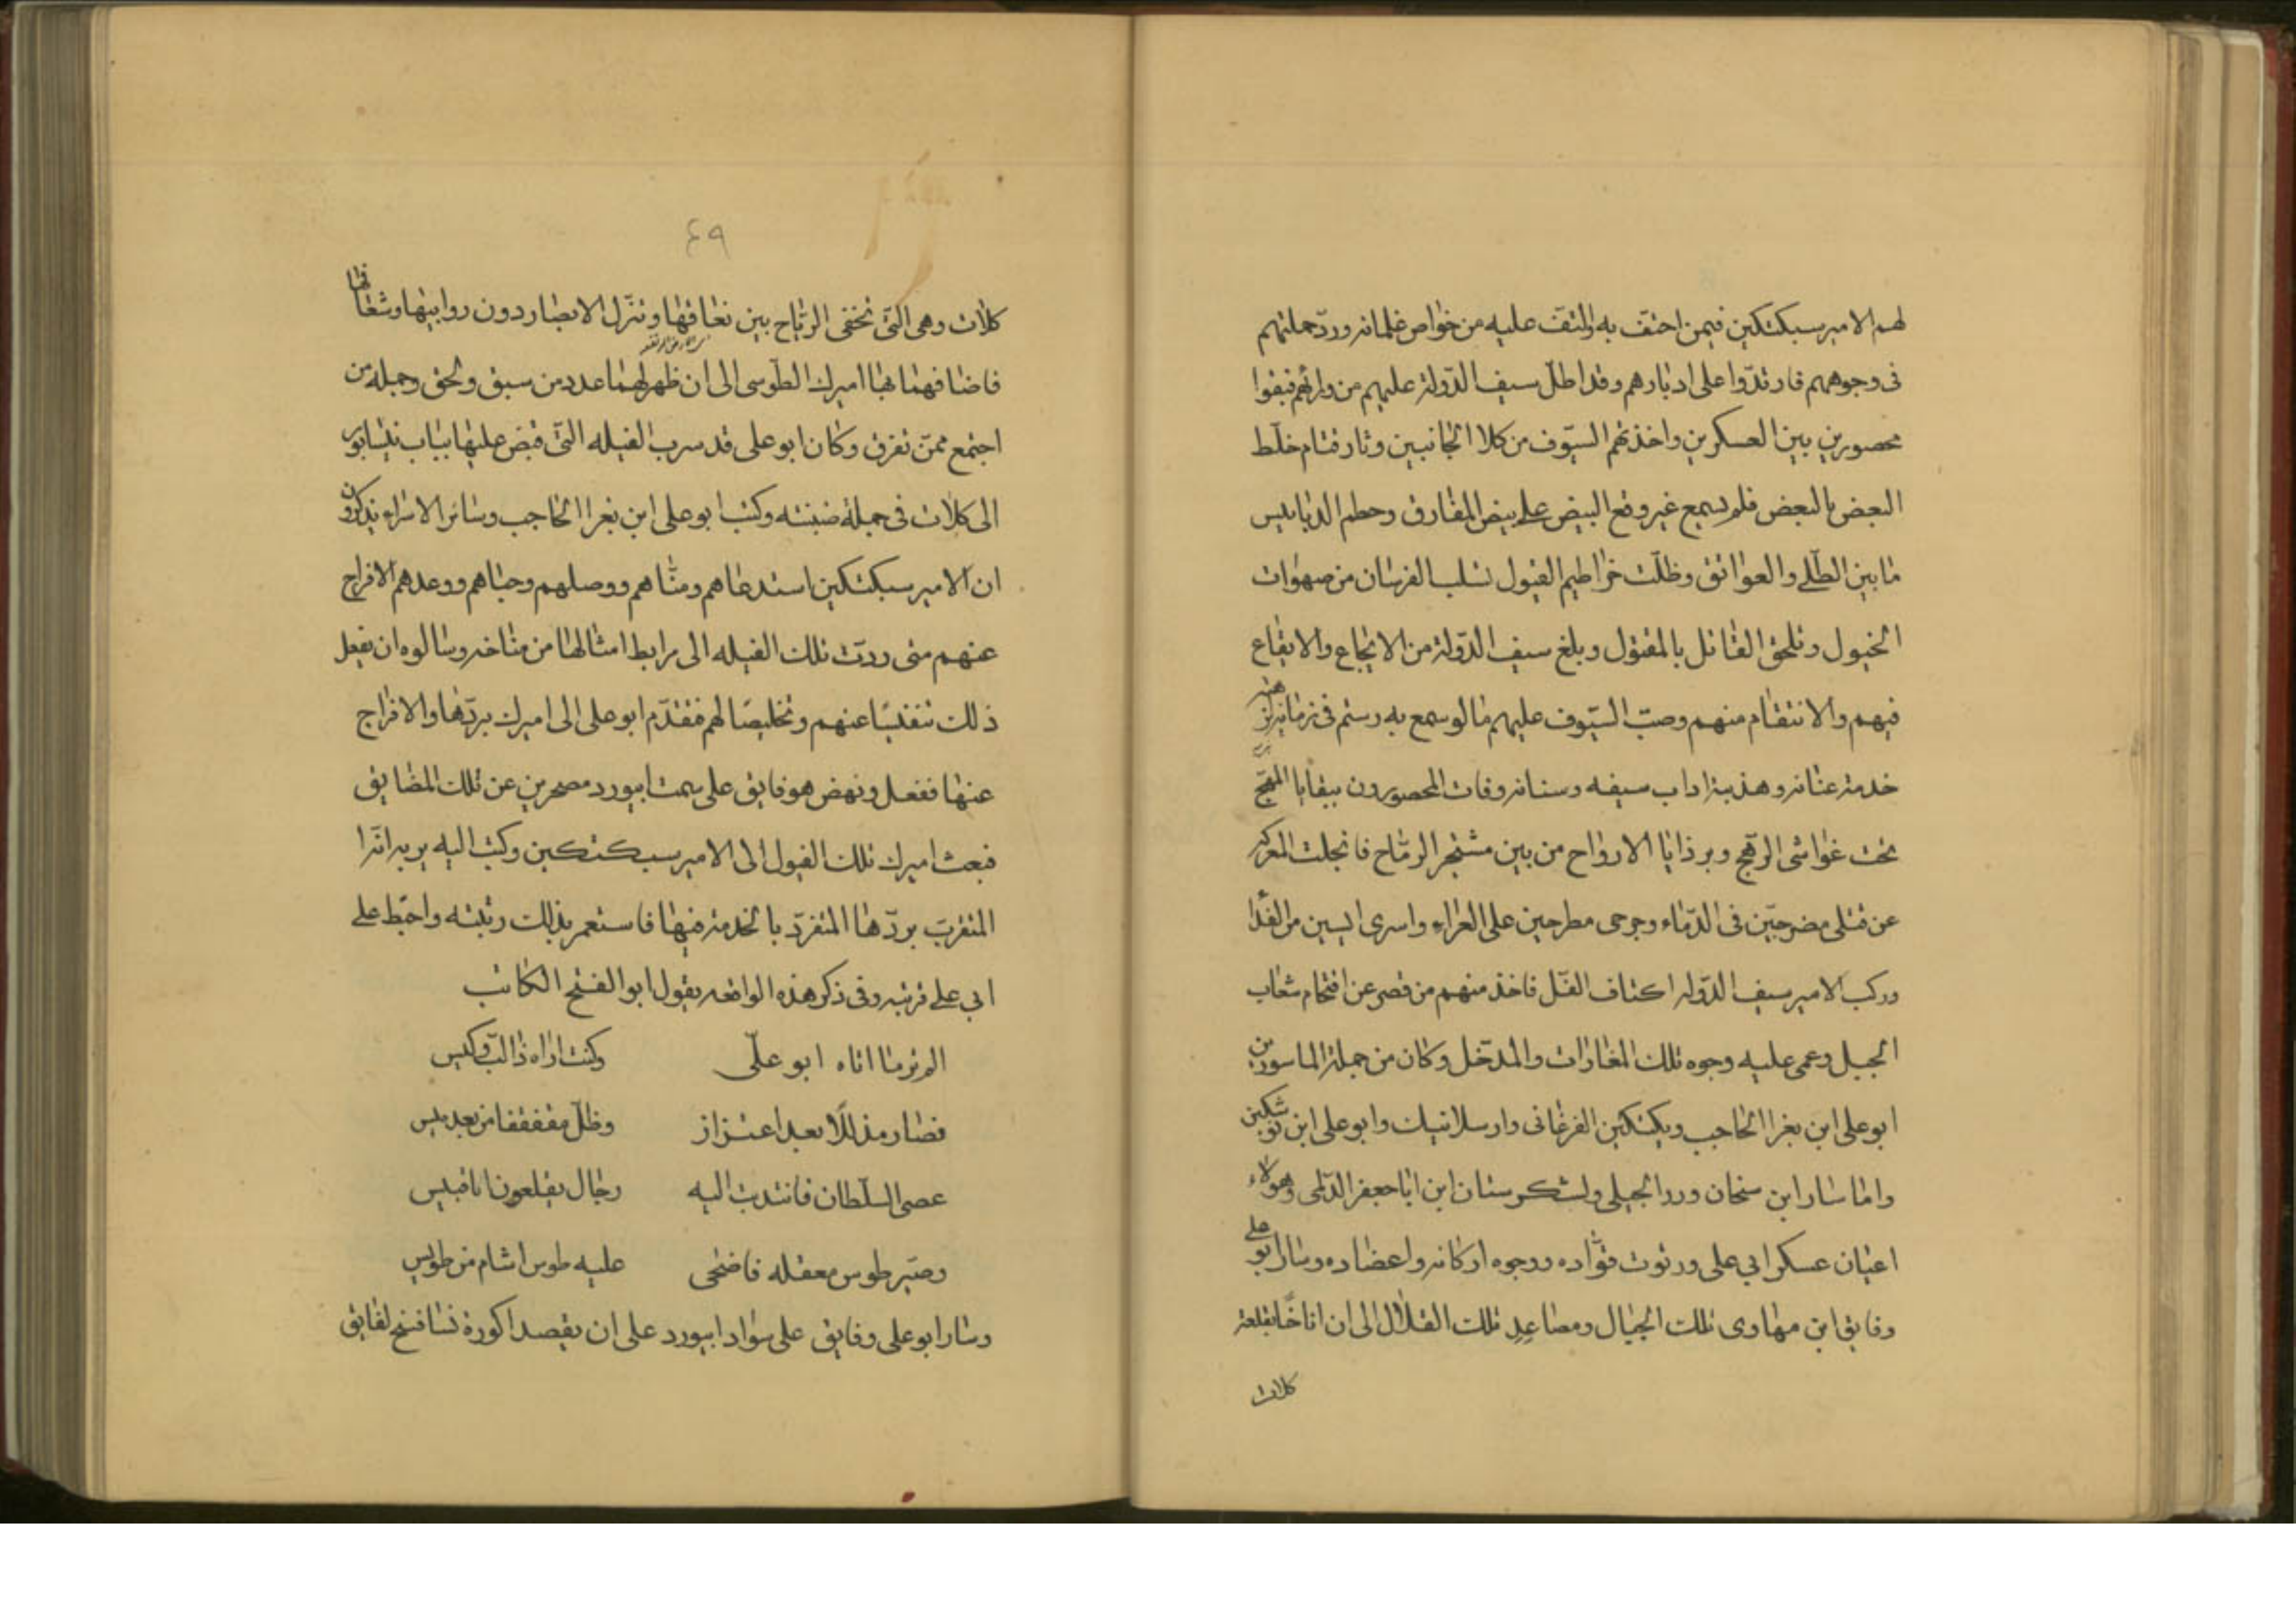 لهم الامير سبكتكين فيمن احتف به والتف عليه من خواص غلمانه وردّ حملتهم
فى وجوههم فارتدّوا على ادبارهم وقد اطلّ سيف الدّولة عليهم من ورائهم فبقوا
محصورين بين العسكرين واخذتهم السيّوف من كلا الجانبين وثار قتام خلّط
البعض بالبعض فلم يسمع غير وقع البيض على بيض المفارق وحطم الدبابيس
ما بين الطّلى والعواتق وظلّت خراطيم الفيول تسلب الفرسان من صهوات
الخيول وتلحق القاتل بالمقتول وبلغ سيف الدّولة من الايجاع والايقاع
فيهم والانتقام منهم وصبّ السيّوف عليهم ما لو سمع به رستم فى زمانه لزمته
خدمة عنانه وهذبته اداب سيفه وسنانه وفات المحصورون ببقايا المهج
تحت غواشى الرهج وبرذايا الارواح من بين مشتجر الرماح فانجلت المعركه
عن قتلى مضرجّين فى الدّماء وجرحى مطرحين على العراء واسرى ايسين من الفدا
وركب الامير سيف الدّوله اكتاف الفلّ فاخذ منهم من قصر عن اقتحام شعاب
الجبل وعمى عليه وجوه تلك المغارات والمدّخل وكان من جملة الماسورين
ابو على ابن بغرا الحاجب وبكتكين الفرغانى وارسلان بيك وابو على ابن نوشتكين
واما سار ابن سنحان ورد الجيلى ولشكرستان ابن ابا جعفر الدّيلمى وهولاء
اعيان عسكر ابى على ورتوت قوّاده ووجوه اركانه واعضاده وسار ابو على
وفايق ابن مهاوى تلك الجبال ومصاعد تلك القلال الى ان اناخا بقلعة
كلات
٤٩
كلات وهى التّى تختفى الرياح بين نغانقها وتنزل الابصار دون روابيها وشعافها
فاضافهما بها اميرك الطّوسى الى ان ظهر لهما عدد من سبق ولحق وجمله من
اجتمع ممّن تفرق وكان ابو على قد سرب الفيله التّى قبض عليها بباب نيسابور
الى كلات فى جملة ضبنته وكتب ابو على ابن بغرا الحاجب وسائر الاسراء يذكرون
ان الامير سبكتكين استدعاهم ومنّاهم ووصلهم وحباهم ووعدهم الافراج
عنهم متى ردّت تلك الفيله الى مرابط امثالها من مناخه وسالوه ان يفعل
ذلك تنفيسًا عنهم وتخليصًا لهم فتقدّم ابو على الى اميرك بردّها والافراج
عنها ففعل ونهض هو فايق على سمت ابيورد مصحرين عن تلك المضايق
فبعث اميرك تلك الفيول الى الامير سبكتكين وكتب اليه يريد انّه
المتقرب بردّها المتفرّد بالخدمة فيها فاستعمر بذلك رتبته واحبط على
ابى على قربته وفى ذكر هذه الواقعه يقول ابو الفتح الكاتب
الم تر ما اتاه ابو علّى وكنت اراه ذا لبّ وكيس
فصار مذللًا بعد اعتزاز وظلّ
عصى السلّطان فانتدبت اليه رجال يقلعون ابا قبيس
وصيّر طوس معقله فاضحى عليه طوس اشام من طويس
وسار ابو على وفايق على سواد ابيورد على ان يقصدا كورة نسا فسخ لفايق